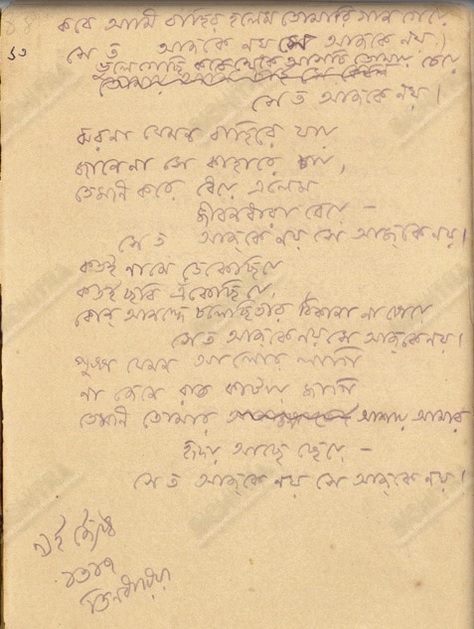 ১০
কবে আমি বাহির হলেম তোমারি গান গেয়ে
সে ত আজকে নয় সে আজকে নয়।
ভুলে গেছি কবে থেকে আসচি তোমায় চেয়ে
সে ত আজকে নয়।
ঝরনা যেমন বাহিরে যায়
জানে না সে কাহারে চায়,
তেমনি করে ধেয়ে এলেম
জীবনধারা বেয়ে –
সে ত আজকে নয় সে আজকে নয়।
কতই নামে ডেকেছি যে
কতই ছবি এঁকেছি যে,
কোন্ আনন্দে চলেছি তার ঠিকানা না পেয়ে
সে ত আজকে নয় সে আজকে নয়।
পুষ্প যেমন আলোর লাগি
না জেনে রাত কাটায় জাগি
তেমনি তোমার আশায় আমার
হৃদয় আছে ছেয়ে –
সে ত আজকে নয় সে আজকে নয়।
জ্যৈষ্ঠ
১৩১৭
তিনধরিয়া